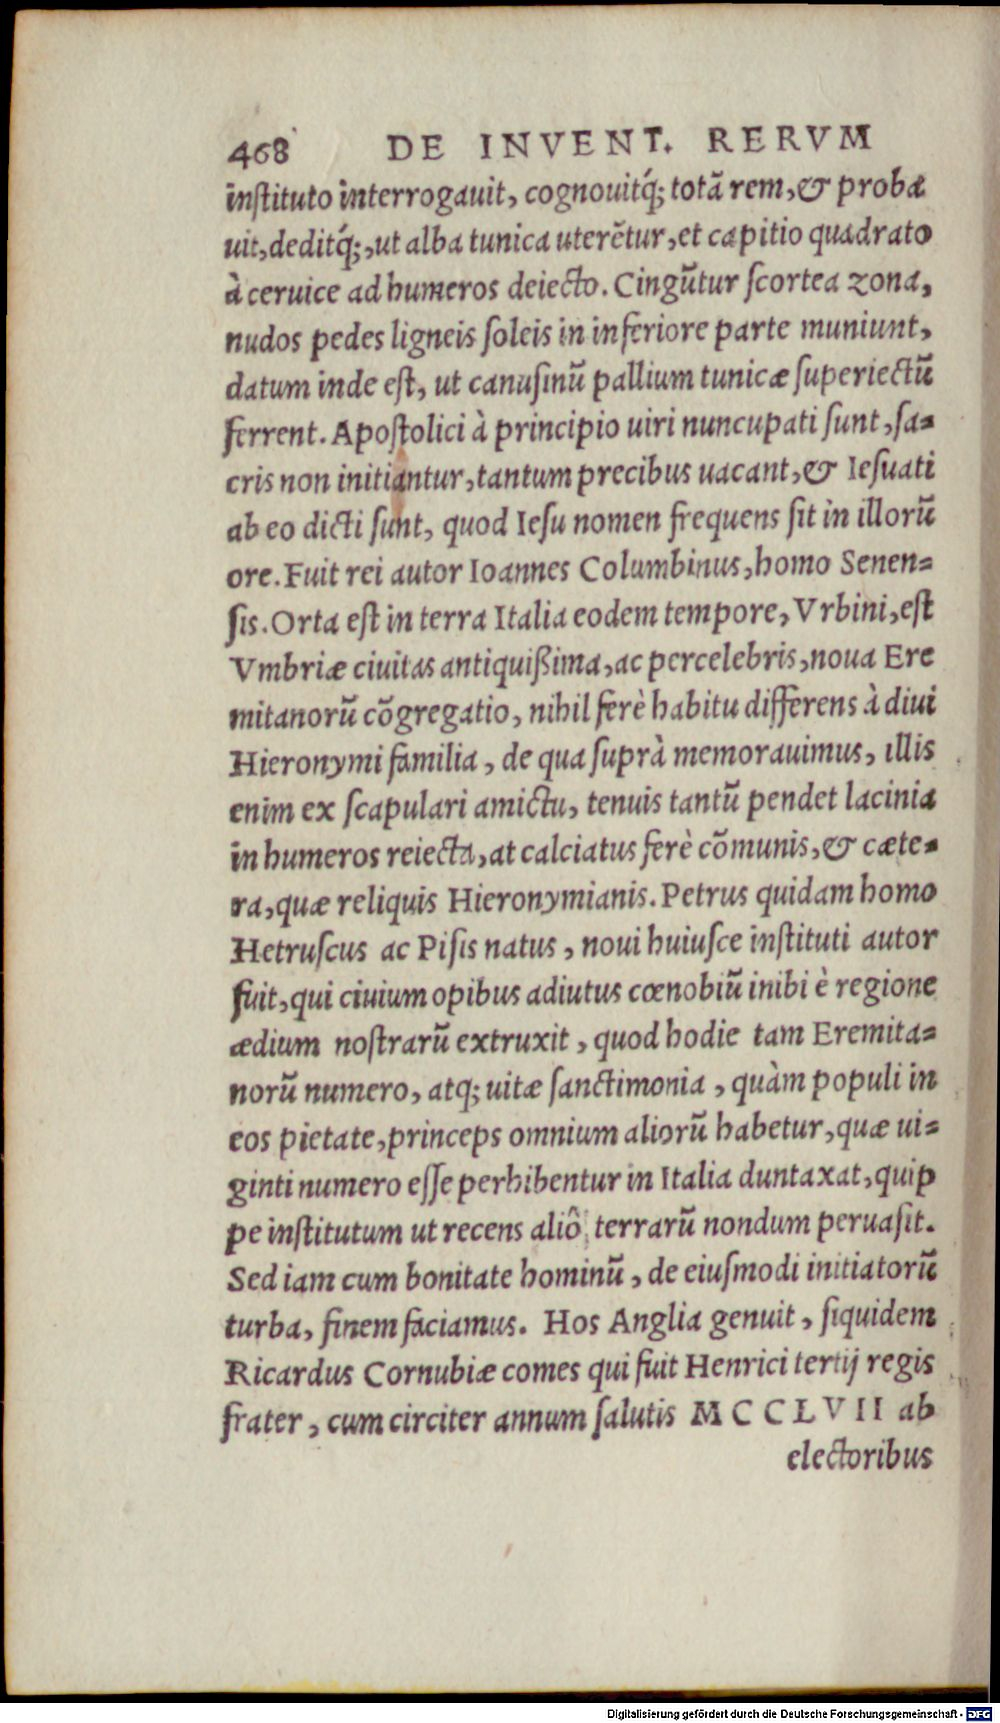 468 DE INVENT. RERVM
inſtituto interrogauit, cognouitq́; totã rem, & probæ
uit, deditq́;, ut alba tunica uterẽtur, et capitio quadrato
à ceruice ad humeros deiecto. Cingũtur ſcortea zona,
nudos pedes ligneis ſoleis in inferiore parte muniunt,
datum inde eſt, ut canuſinũ pallium tunicæ ſuperiectũ
ferrent. Apoſtolici à principio uiri nuncupati ſunt, ſa-
cris non initiantur, tantum precibus uacant, & Ieſuati
ab eo dicti ſunt, quod Ieſu nomen frequens ſit in illorũ
ore. Fuit rei autor Ioannes Columbinus, homo Senen-
ſis. Orta eſt in terra Italia eodem tempore, Vrbini, eſt
Vmbriæ ciuitas antiquißima, ac percelebris, noua Ere
mitanorũ cõgregatio, nihil ferè habitu differens à diui
Hieronymi familia, de qua ſuprà memorauimus, illis
enim ex ſcapulari amictu, tenuis tantũ pendet lacinia
in humeros reiecta, at calciatus ferè cõmunis, & cæte-
ra, quæ reliquis Hieronymianis. Petrus quidam homo
Hetruſcus ac Piſis natus, noui huiuſce inſtituti autor
fuit, qui ciuium opibus adiutus cœnobiũ inibi è regione
ædium noſtrarũ extruxit, quod hodie tam Eremita-
norũ numero, atq; uitæ ſanctimonia, quàm populi in
eos pietate, princeps omnium aliorũ habetur, quæ ui-
ginti numero eſſe perhibentur in Italia duntaxat, quip
pe inſtitutum ut recens aliô terrarũ nondum peruaſit.
Sed iam cum bonitate hominũ, de eiuſmodi initiatorũ
turba, finem faciamus. Hos Anglia genuit, ſiquidem
Ricardus Cornubiæ comes qui fuit Henrici tertij regis
frater, cum circiter annum ſalutis MCCLVII ab
electoribus
Digitalisierung gefördert durch die Deutsche Forschungsgemeinschaft - DFG